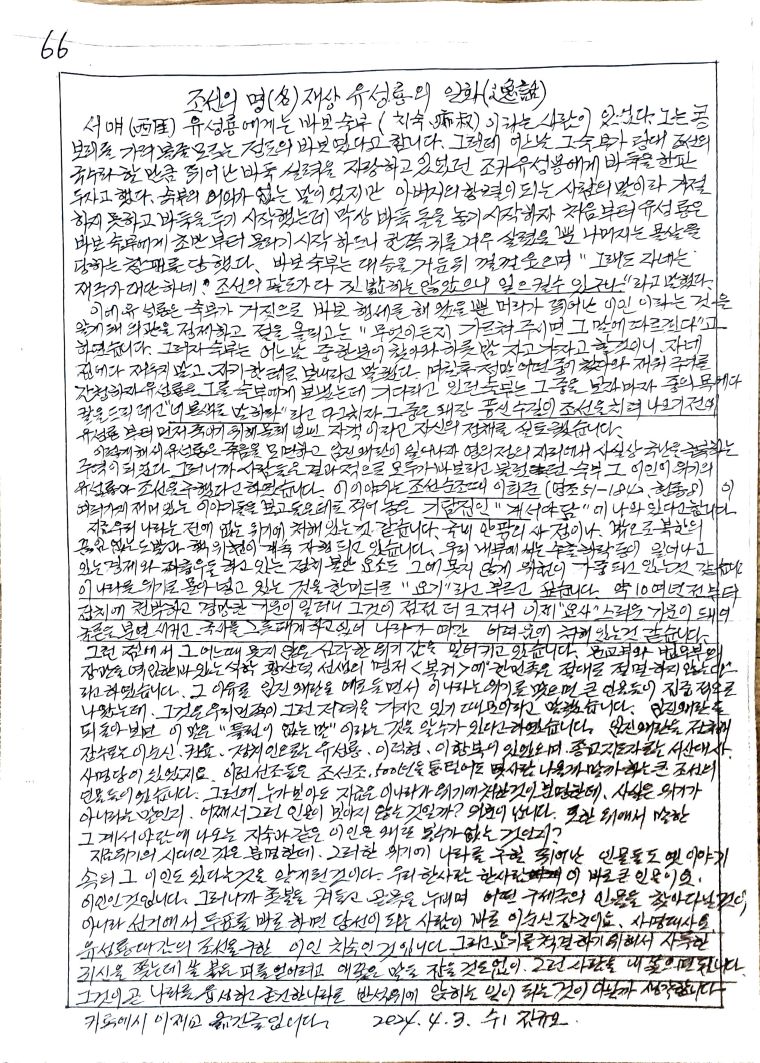 66
조선의 명(名)재상 유성룡의 일화(逸話)
서애(西厓) 유성룡에게는 바보 숙부 (치숙, 痴叔) 이라는 사람이 있었다. 그는 콩
보리를 가려 볼줄 모르는 정도의 바보였다고 합니다. 그런데 어느날 그 숙부가 당대 조선의
국수라 할 만큼 뛰어난 바둑 실력을 자랑하고 있었던 조카 유성룡에게 바둑을 한판
두자고 했다. 숙부의 어이가 없는 말이었지만 아버지의 항렬이 되는 사람의 말이라 거절
하지 못하고 바둑을 두기 시작했는데 막상 바둑 돌을 놓기 시작하자 처음부터 유성룡은
바보 숙부에게 초반부터 몰리기 시작 하드니 한쪽 귀를 겨우 살렸을 뿐 나머지는 몰살을
당하는 참패를 당했다. 바보 숙부는 대승을 거둔뒤 껄껄 웃으며 "그래도 자네는
재주가 대단하네. 조선의 팔도가 다 짓밟히는 않았으니 일으켜 수 있구나" 라고 말했다.
이에 유성룡은 숙부가 거짓으로 바보 행세를 해 왔을 뿐 머리가 뛰어난 이인 이라는 것을
알게돼 의관을 정제하고 절을 올리고는 "무엇이든지 가르쳐 주시면 그 말에 따르겠다"고
하였습니다. 그러자 숙부는 어느날 중 한분이 찾아와 하룻밤 자고 가자고 할것이니, 자네
집에다 재우지 말고 자기 한테로 보내라고 말했다. 며칠후 정말 어떤 중이 찾아와 재워 주기를
간청하자 유성룡은 그를 숙부에게 보냈는데 기다리고 있던 숙부는 그 중을 보자 마자 중의 목에다
칼을 드리대고 "네 본색을 말하라" 라고 다그치자 그 중은 왜장 풍신수길이 조선을 치러 나오기 전에
유성룡 부터 먼저 죽이기 위해 몰래 보낸 자객 이라고 자신의 정체를 실토 했습니다.
이렇게 해서 유성룡은 죽음을 모면하고 임진왜란이 일어나자 영의정의 자리에서 사실상 국난을 극복하는
주역이 되었다. 그러니까 사람들은 결과적으로 모두가 바보라고 불렀던 숙부 그 이인이 위기의
유성룡과 조선을 구했다고 하였습니다. 이 이야기는 조선 순조때 이희준 (영조51-1842, 헌종8) 이
여러가지 재미 있는 이야기들을 보고 들은 대로 적어 놓은 기담집인 "계서야담" 에 나와 있다고 합니다.
지금 우리 나라는 전에 없는 위기에 처해 있는것 같습니다. 국내 안팎의 사정이나, 밖으로 북한의
끊임 없는 도발과 핵 위협이 계속 자행 되고 있습니다. 우리 내부에서는 수출하락 등이 일어나고
있는 경제와 파급을 하고 있는 정치 불안 요소도 그에 못지 않게 위협이 가중 되고 있는것 같습니다.
이 나라를 위기로 몰아 넣고 있는 것을 한마디로 "요기" 라고 부르고 싶습니다. 약 10여년 전 부터
정치에 천박하고 경망한 기운이 일더니 그것이 점점 더 커져서 이제 "요사" 스러운 기운이 돼어
국론을 분열 시키고, 국사를 그릇되게 하고 있어 나라가 매우 어려움에 처해 있는것 같습니다.
그런 점에서 그 어느때 못지 않은 심각한 위기감을 일으키고 있습니다. 문교부와 법무부의
장관을 역임한바 있는 석학 황산덕 선생의 명저 <복귀> 에 "한민족은 절대로 절멸 하지 않는다"
라고 하였습니다. 그 이유로 임진왜란을 예로 들면서 이 나라는 위기를 맞으면 큰 인물들이 집중적으로
나왔는데, 그것은 우리 민족이 그런 저력을 가지고 있기 때문이라고 말했습니다. 임진왜란을
되돌아 보면 이 말은 "틀림이 없는 말" 이라는 것을 알수가 있다고 하였습니다. 임진왜란을 전후해
장수로는 이순신, 권율, 정치인으로는 유성룡, 이덕형, 이항복이 있었으며, 종교지도자로는 서산대사,
사명당이 있었지요. 이런 선조들은 조선조, 500년을 통틀어도 몇사람 나올까 말까 하는 큰 조선의
인물들이었습니다. 그런데 누가 보아도 지금은 이 나라가 위기에 처한것이 분명한데, 사실은 위기가
아니라는 말인지, 어째서 그런 인물이 보이지 않는 것일까? 의문이 납니다. 또한 위에서 말한
그 계서야담에 나오는 치숙과 같은 이인은 왜 또 볼수가 없는 것인지?
지금 위기의 시대인 것은 분명한데, 그러한 위기에 나라를 구할 뛰어난 인물들도 옛 이야기
속의 그 이인도 있다는 것을 알게 된 것이다. 우리 한사람 한사람 이 바로 큰 인물이요,
이인인 것입니다. 그러니까 촛불을 켜들고 광목을 누비며 어떤 구세주의 인물을 찾아다닐 것이
아니라 선거에서 투표를 바로 하면 당선이 되는 사람이 바로 이순신 장군이요, 사명대사요,
유성룡 대감의 조선을 구한 이인 치숙인 것입니다. 그리고 요기를 척결 하기 위해서 사특한
귀신을 쫓는데 쓸 붉은 피를 얻으려고 애꿎은 말을 잡을 것도 없이, 그런 사람을 내 쫓으면 됩니다.
그것이 곧 나라를 융성하고 굳건한 나라로 반석위에 앉히는 일이 되는 것이 아닌가 생각합니다.
카톡에서 이재교 옮긴글입니다. 2024. 4. 3. 수 김규오.